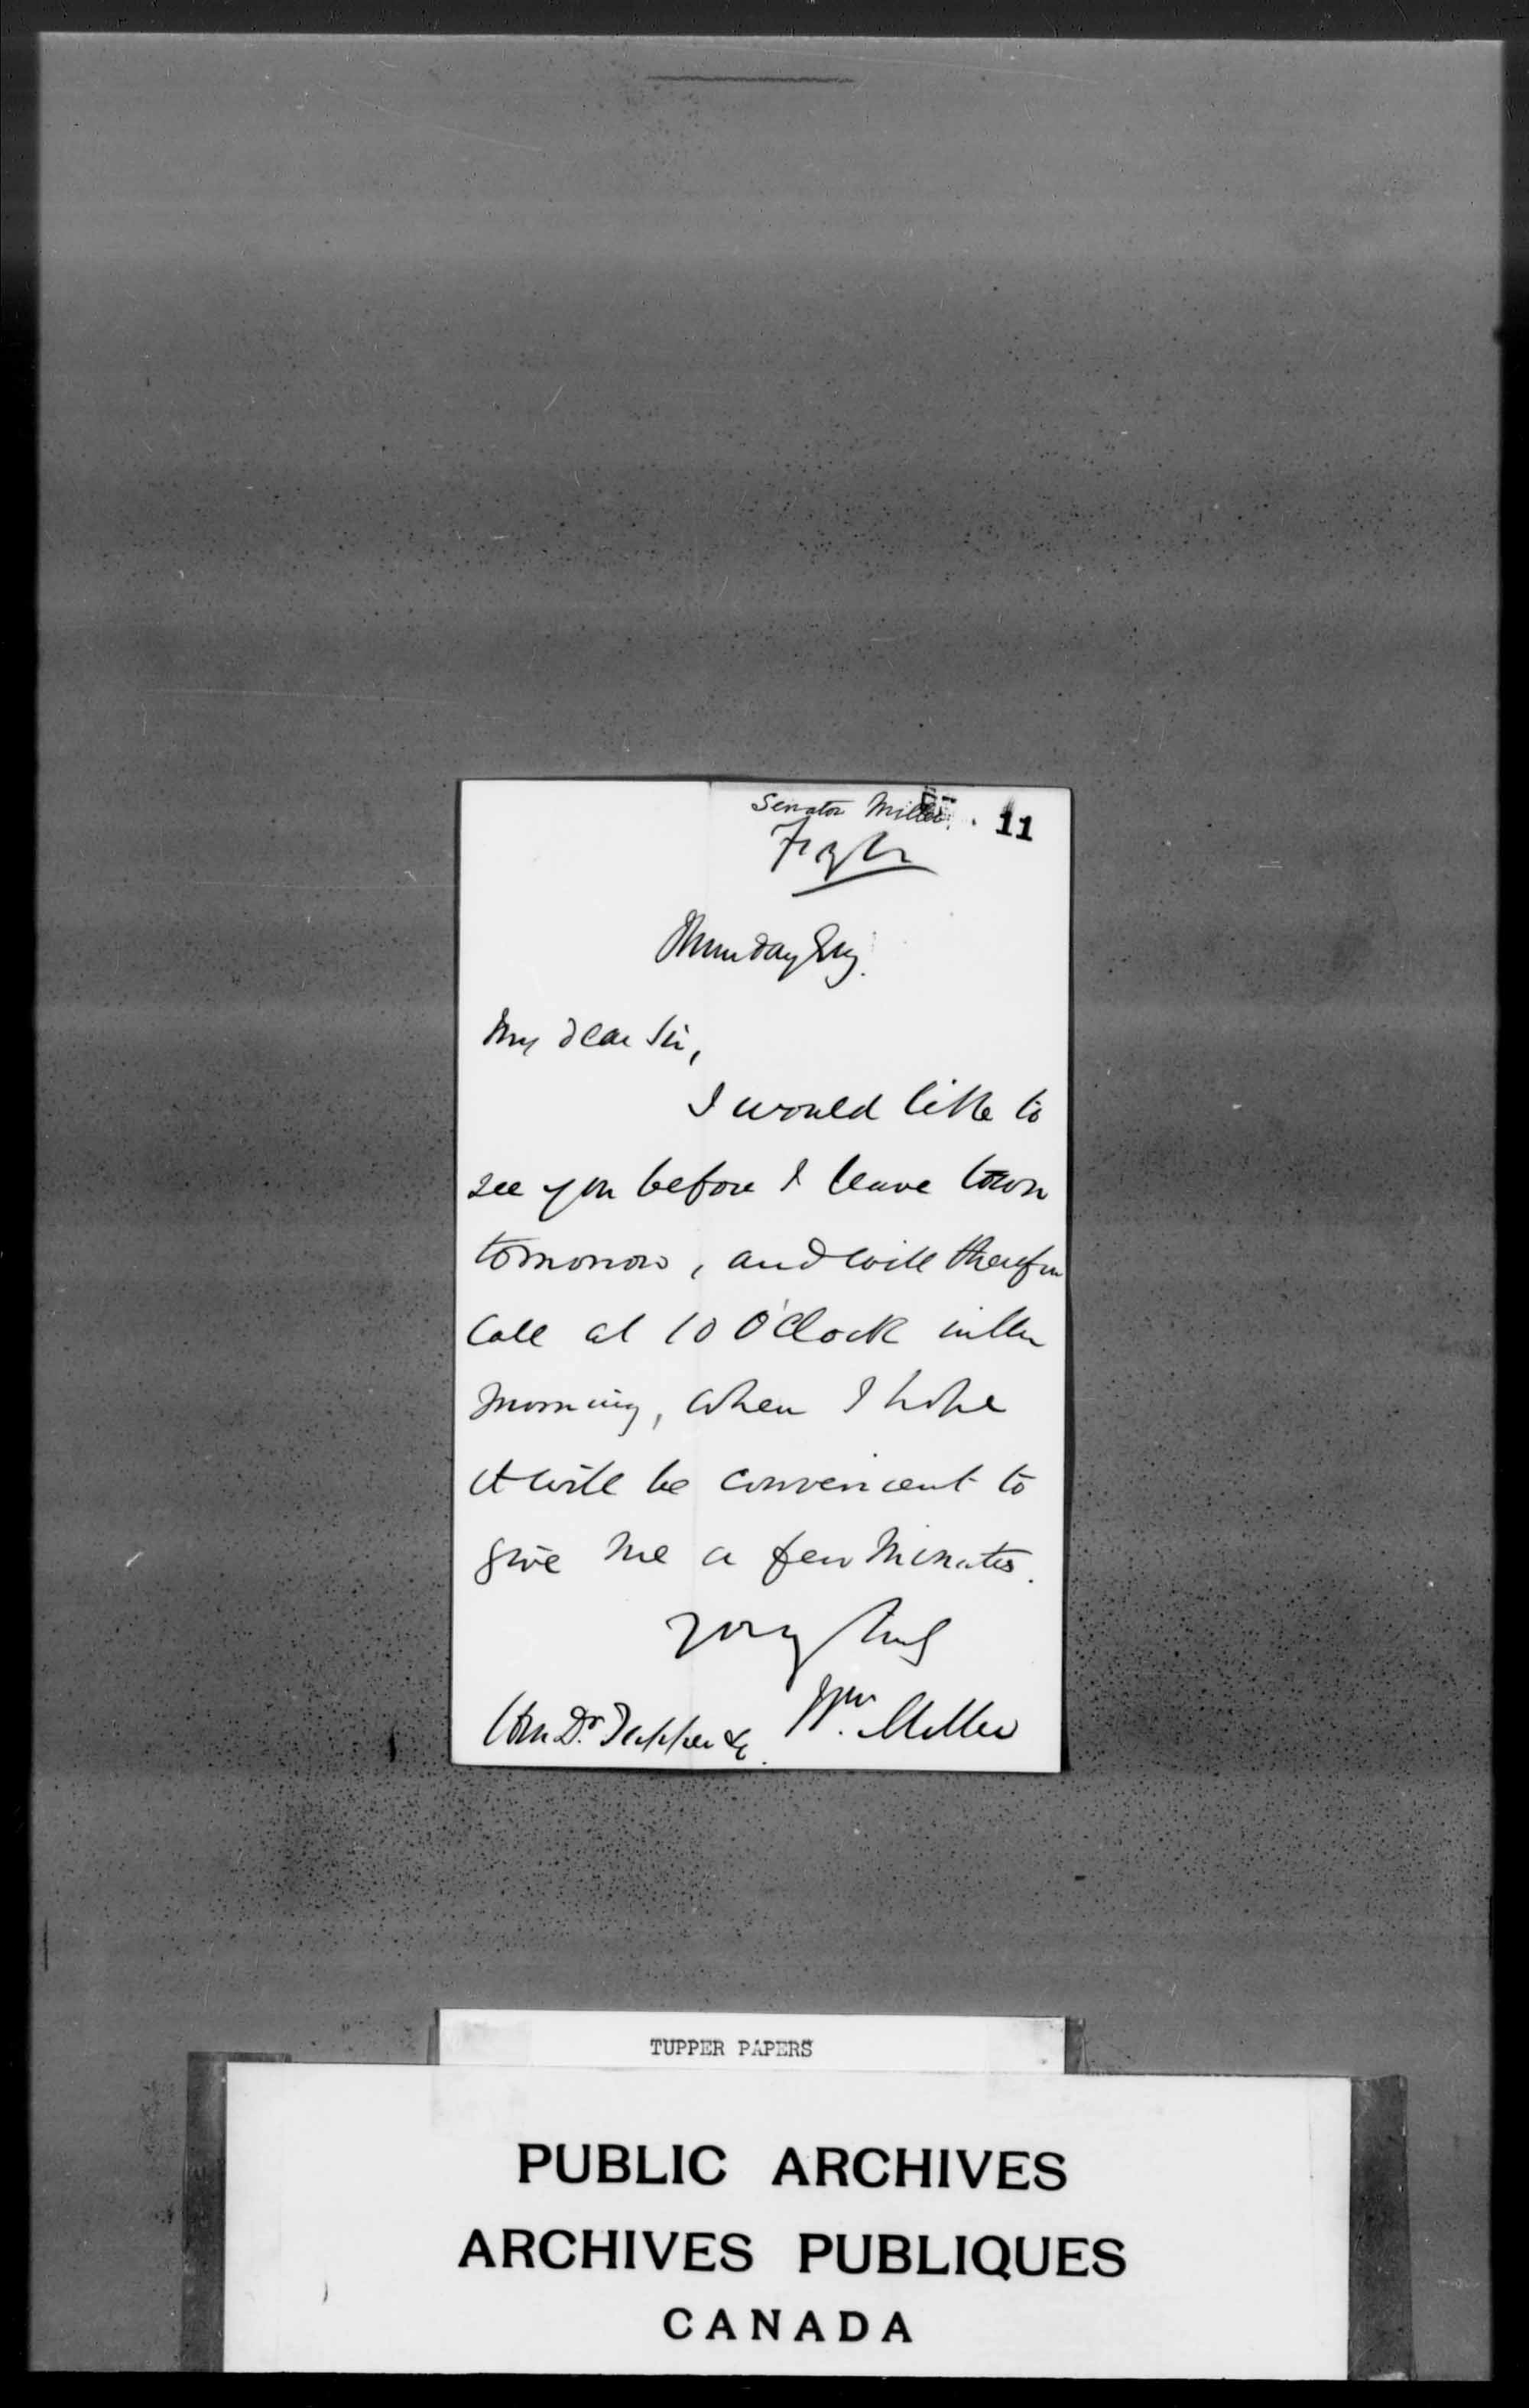 Senator Miller. 11
Thursday Evg.
My dear Sir,
I would like to
see you before I leave town
tomorrow, and will therefore
call at 10 O'Clock in the
morning, when I hope
it will be convenient to
give me a few minutes.
Yours truly
Wm. Miller
Hon Dr. Tupper &c.
TUPPER PAPERS
PUBLIC ARCHIVES
ARCHIVES PUBLIQUES
CANADA